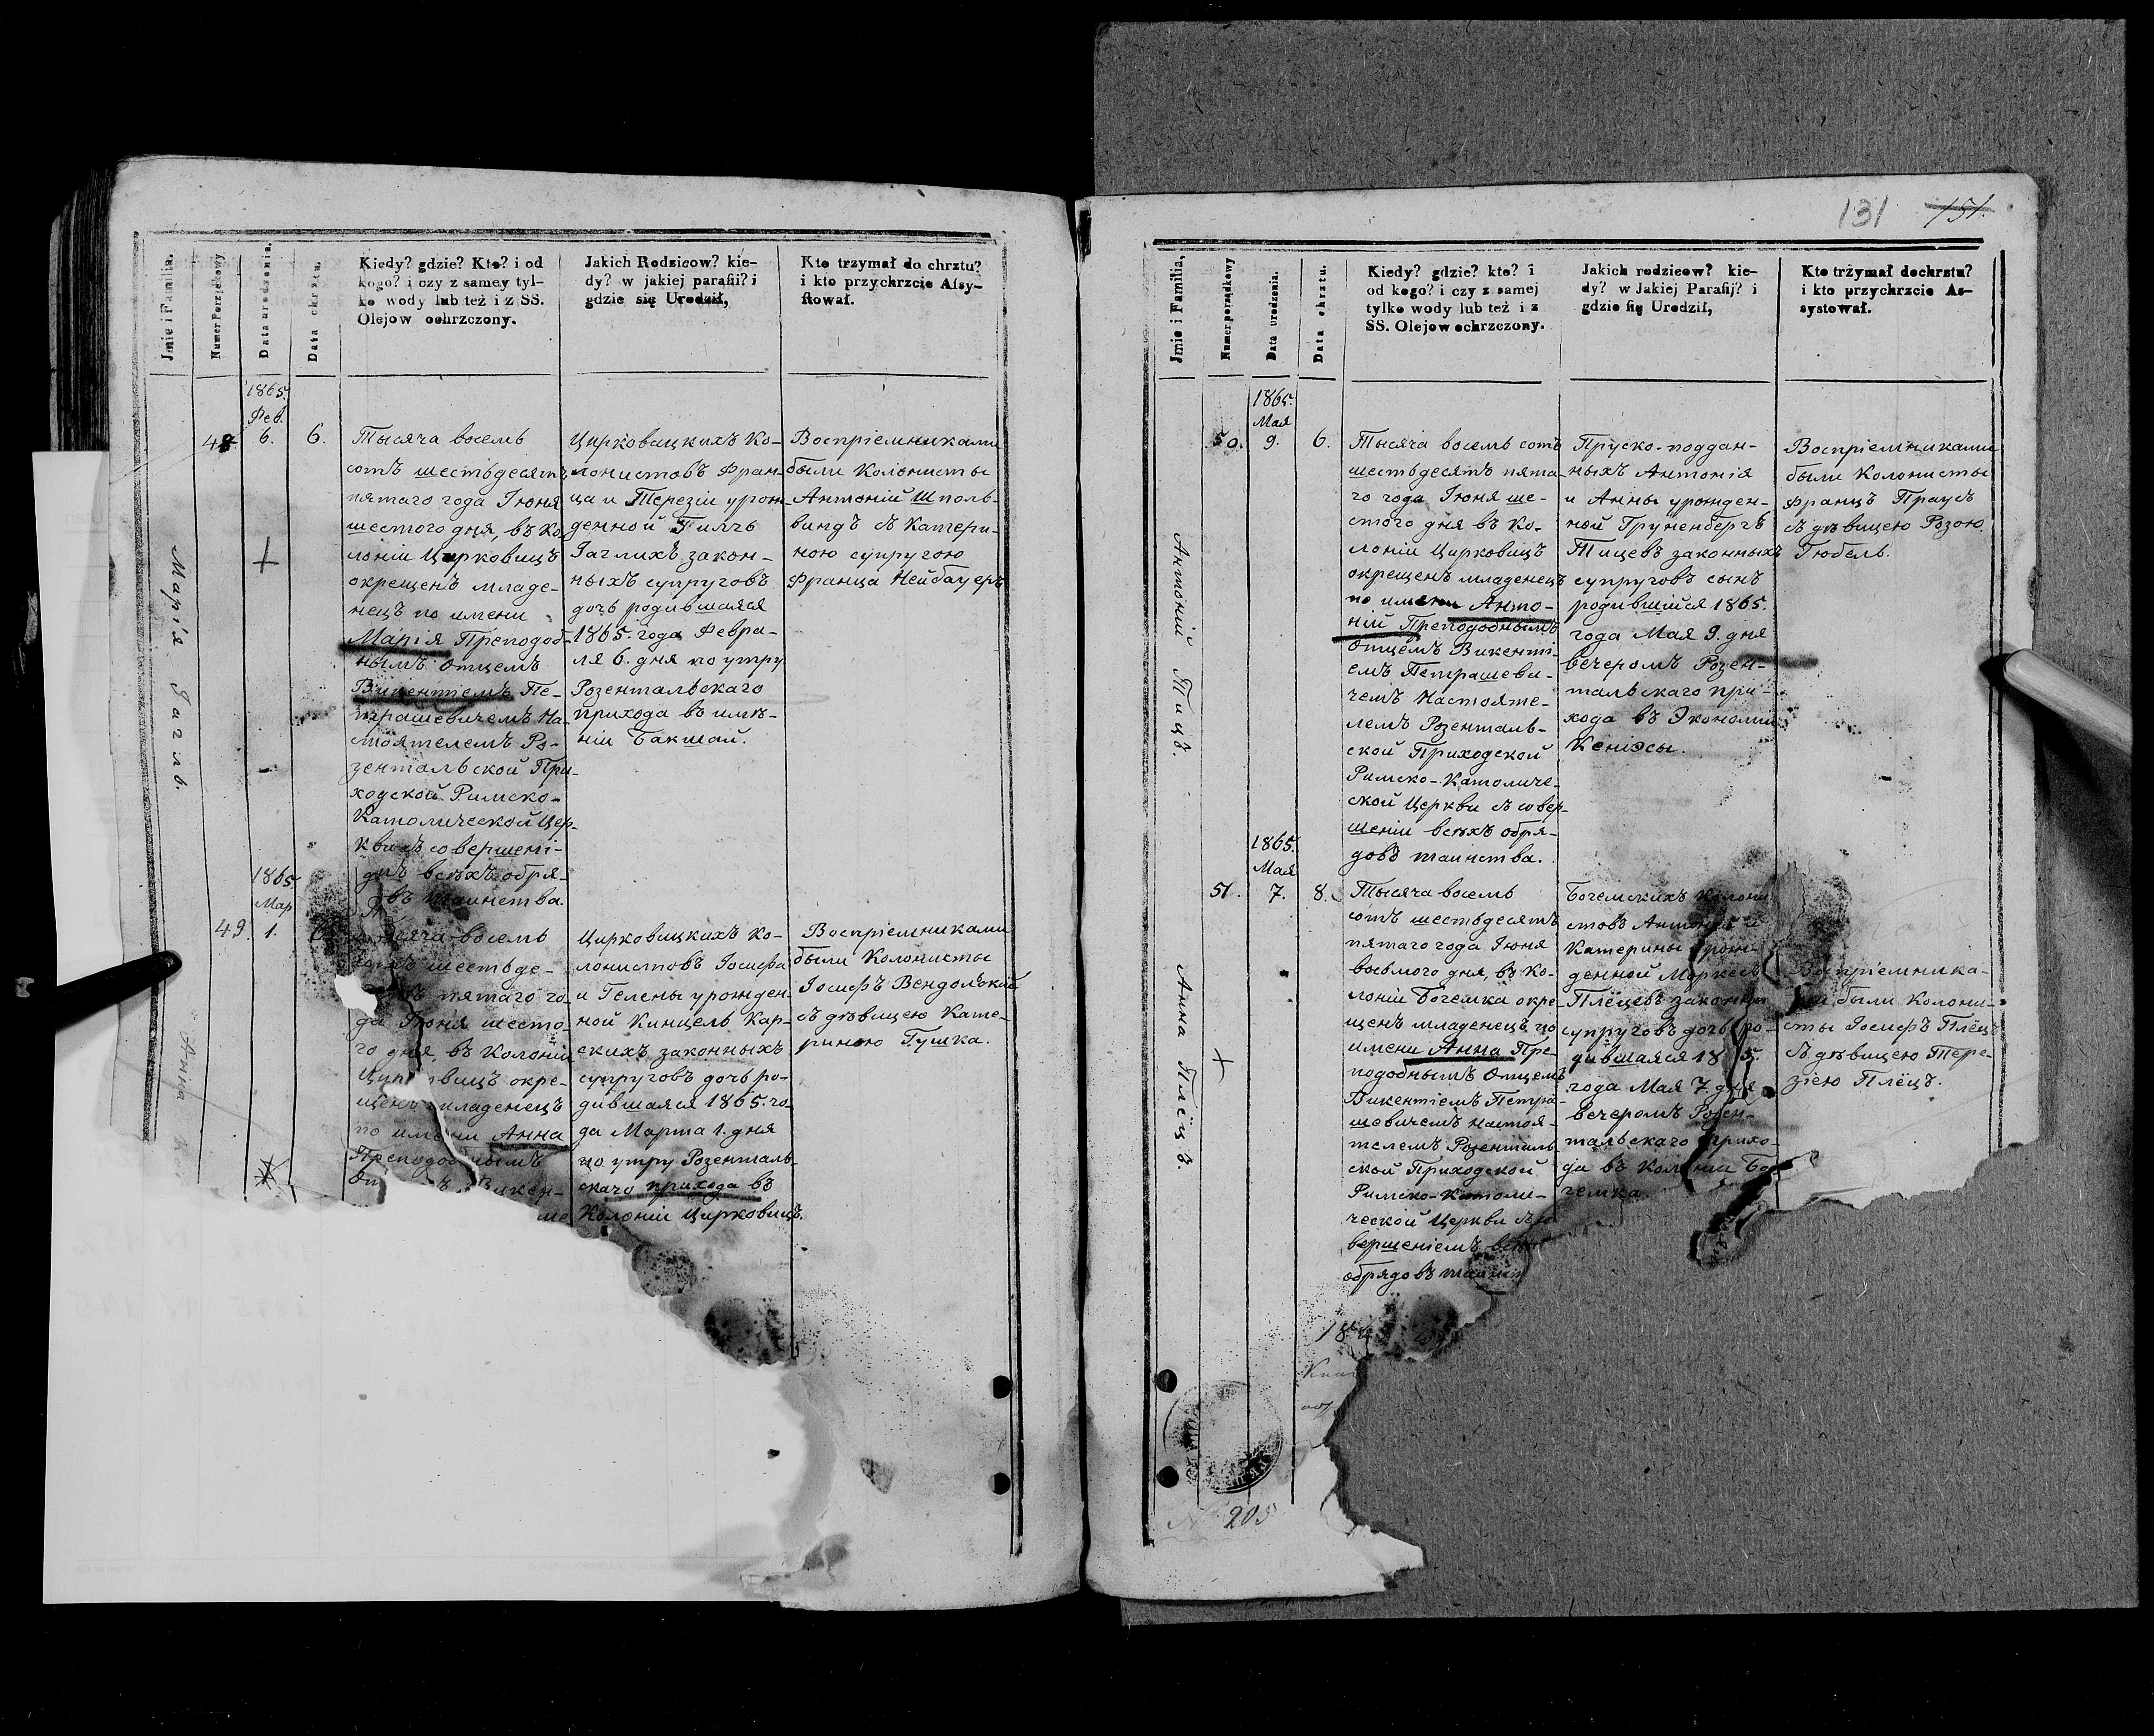 Jmie i Familia.
Numer Porządkowy
Data urodzenia.
Data chrztu.
Kiedy? gdzie? Kto? i od
kogo? i czy z samey tyl-
ko wody lub też i z SS.
Olejow ochrzczony.
Jakich Rodzicow? kie-
dy? w jakiej parafii? i
gdzie się Urodził,
Kto trzymał do chrztu?
i kto przychrzcie Afsy-
ftował.
Марія Гаглъ.
1865.
Фев.
48. 6. 6.
Тысяча восемь
сотъ шестьдесятъ
пятаго года Іюня
шестого дня, въ Ко-
лоніи Цирковицъ
окрещенъ младе-
нецъ по имени
Марія Преподоб-
нымъ Отцемъ
Викентіемъ Пе-
трашевичемъ На-
стоятелемъ Ро-
зентальской При-
ходской Римско-
Католической Цер-
кви съ совершені-
емъ всѣхъ обря-
довъ таинства.
Цирковицкихъ Ко-
лонистовъ Фран-
ца и Терезіи урож-
денной Гилгъ
Гаглихъ закон-
ныхъ супруговъ
дочь родившаяся
1865. года Февра-
ля 6. дня по утру
Розентальскаго
прихода въ имѣ-
ніи Бакшай.
Воспріемниками
были Колонисты
Антоній Шполь-
виндъ съ Катери-
ною супругою
Франца Нейбауеръ
Анна
1865
Мар
49. 1.
восемь
шестьде-
пятаго го-
да Іюня шесто-
го дня, въ Колоніи
окре-
щенъ младенецъ
по имени Анна
Преподобнымъ
Викен-
Цирковицкихъ Ко-
лонистовъ Іосифа
и Гелены урожден-
ной Кинцель Кар-
скихъ законныхъ
супруговъ дочь ро-
дившаяся 1865. го-
да Марта 1. дня
по утру Розенталь-
скаго прихода въ
Колоніи Цирковицъ.
Воспріемниками
были Колонисты
Іосифъ Вендольскій
съ дѣвицею Кате-
риною Гушка.
131 151.
Jmie i Familia,
Numer porządkowy
Data urodzenia.
Data chrztu.
Kiedy? gdzie? kto? i
od kogo? i czy z samej
tylko wody lub też i z
SS. Olejow ochrzczony.
Jakich rodzicow? kie-
dy? w Jakiej Parafij? i
gdzie fię Urodził,
Kto trżymał dochrztu?
i kto przychrzcie As-
systował.
Антоній Тицъ.
1865.
Мая
50. 9. 6.
Тысяча восемь сотъ
шестьдесятъ пята-
го года Іюня ше-
стого дня въ Ко-
лоніи Цирковицъ
окрещенъ младенецъ
по имени Анто-
ній Преподобнымъ
Отцемъ Викенті-
емъ Петрашеви-
чемъ Настояте-
лемъ Розенталь-
ской Приходской
Римско-Католиче-
ской Церкви съ совер-
шеніи всѣхъ обря-
довъ таинства.
Пруско-поддан-
ныхъ Антонія
и Анны урожден-
ной Груненбергъ
Тицевъ законныхъ
супруговъ сынъ
родившійся 1865.
года Мая 9. дня
вечеромъ Розен-
тальскаго при-
хода въ Экономіи
Кеніэсы.
Воспріемниками
были Колонисты
Францъ Праусъ
съ дѣвицею Розою
Гюбель.
Анна Плёцъ
1865.
Мая
51. 7. 8.
Тысяча восемь
сотъ шестьдесятъ
пятаго года Іюня
восьмого дня, въ Ко-
лоніи Богемка окре-
щенъ младенецъ по
имени Анна Пре-
подобнымъ Отцемъ
Викентіемъ Петра-
шевичемъ Настоя-
телемъ Розенталь-
ской Приходской
Римско-Католи-
ческой Церкви съ со-
вершеніемъ
обрядовъ
Богемскихъ Колони-
стовъ Антонія и
Катерины урож-
денной Моркесъ
Плёцевъ законныхъ
супруговъ дочь ро-
дившаяся 18 5.
года Мая 7. дня
вечеромъ Розен-
тальскаго прихо-
да въ Колоніи Бо-
гемка.
Воспріемника-
ми были Колони-
сты Іосифъ Плёцъ
съ дѣвицею Тере-
зіею Плёцъ.
№ 205